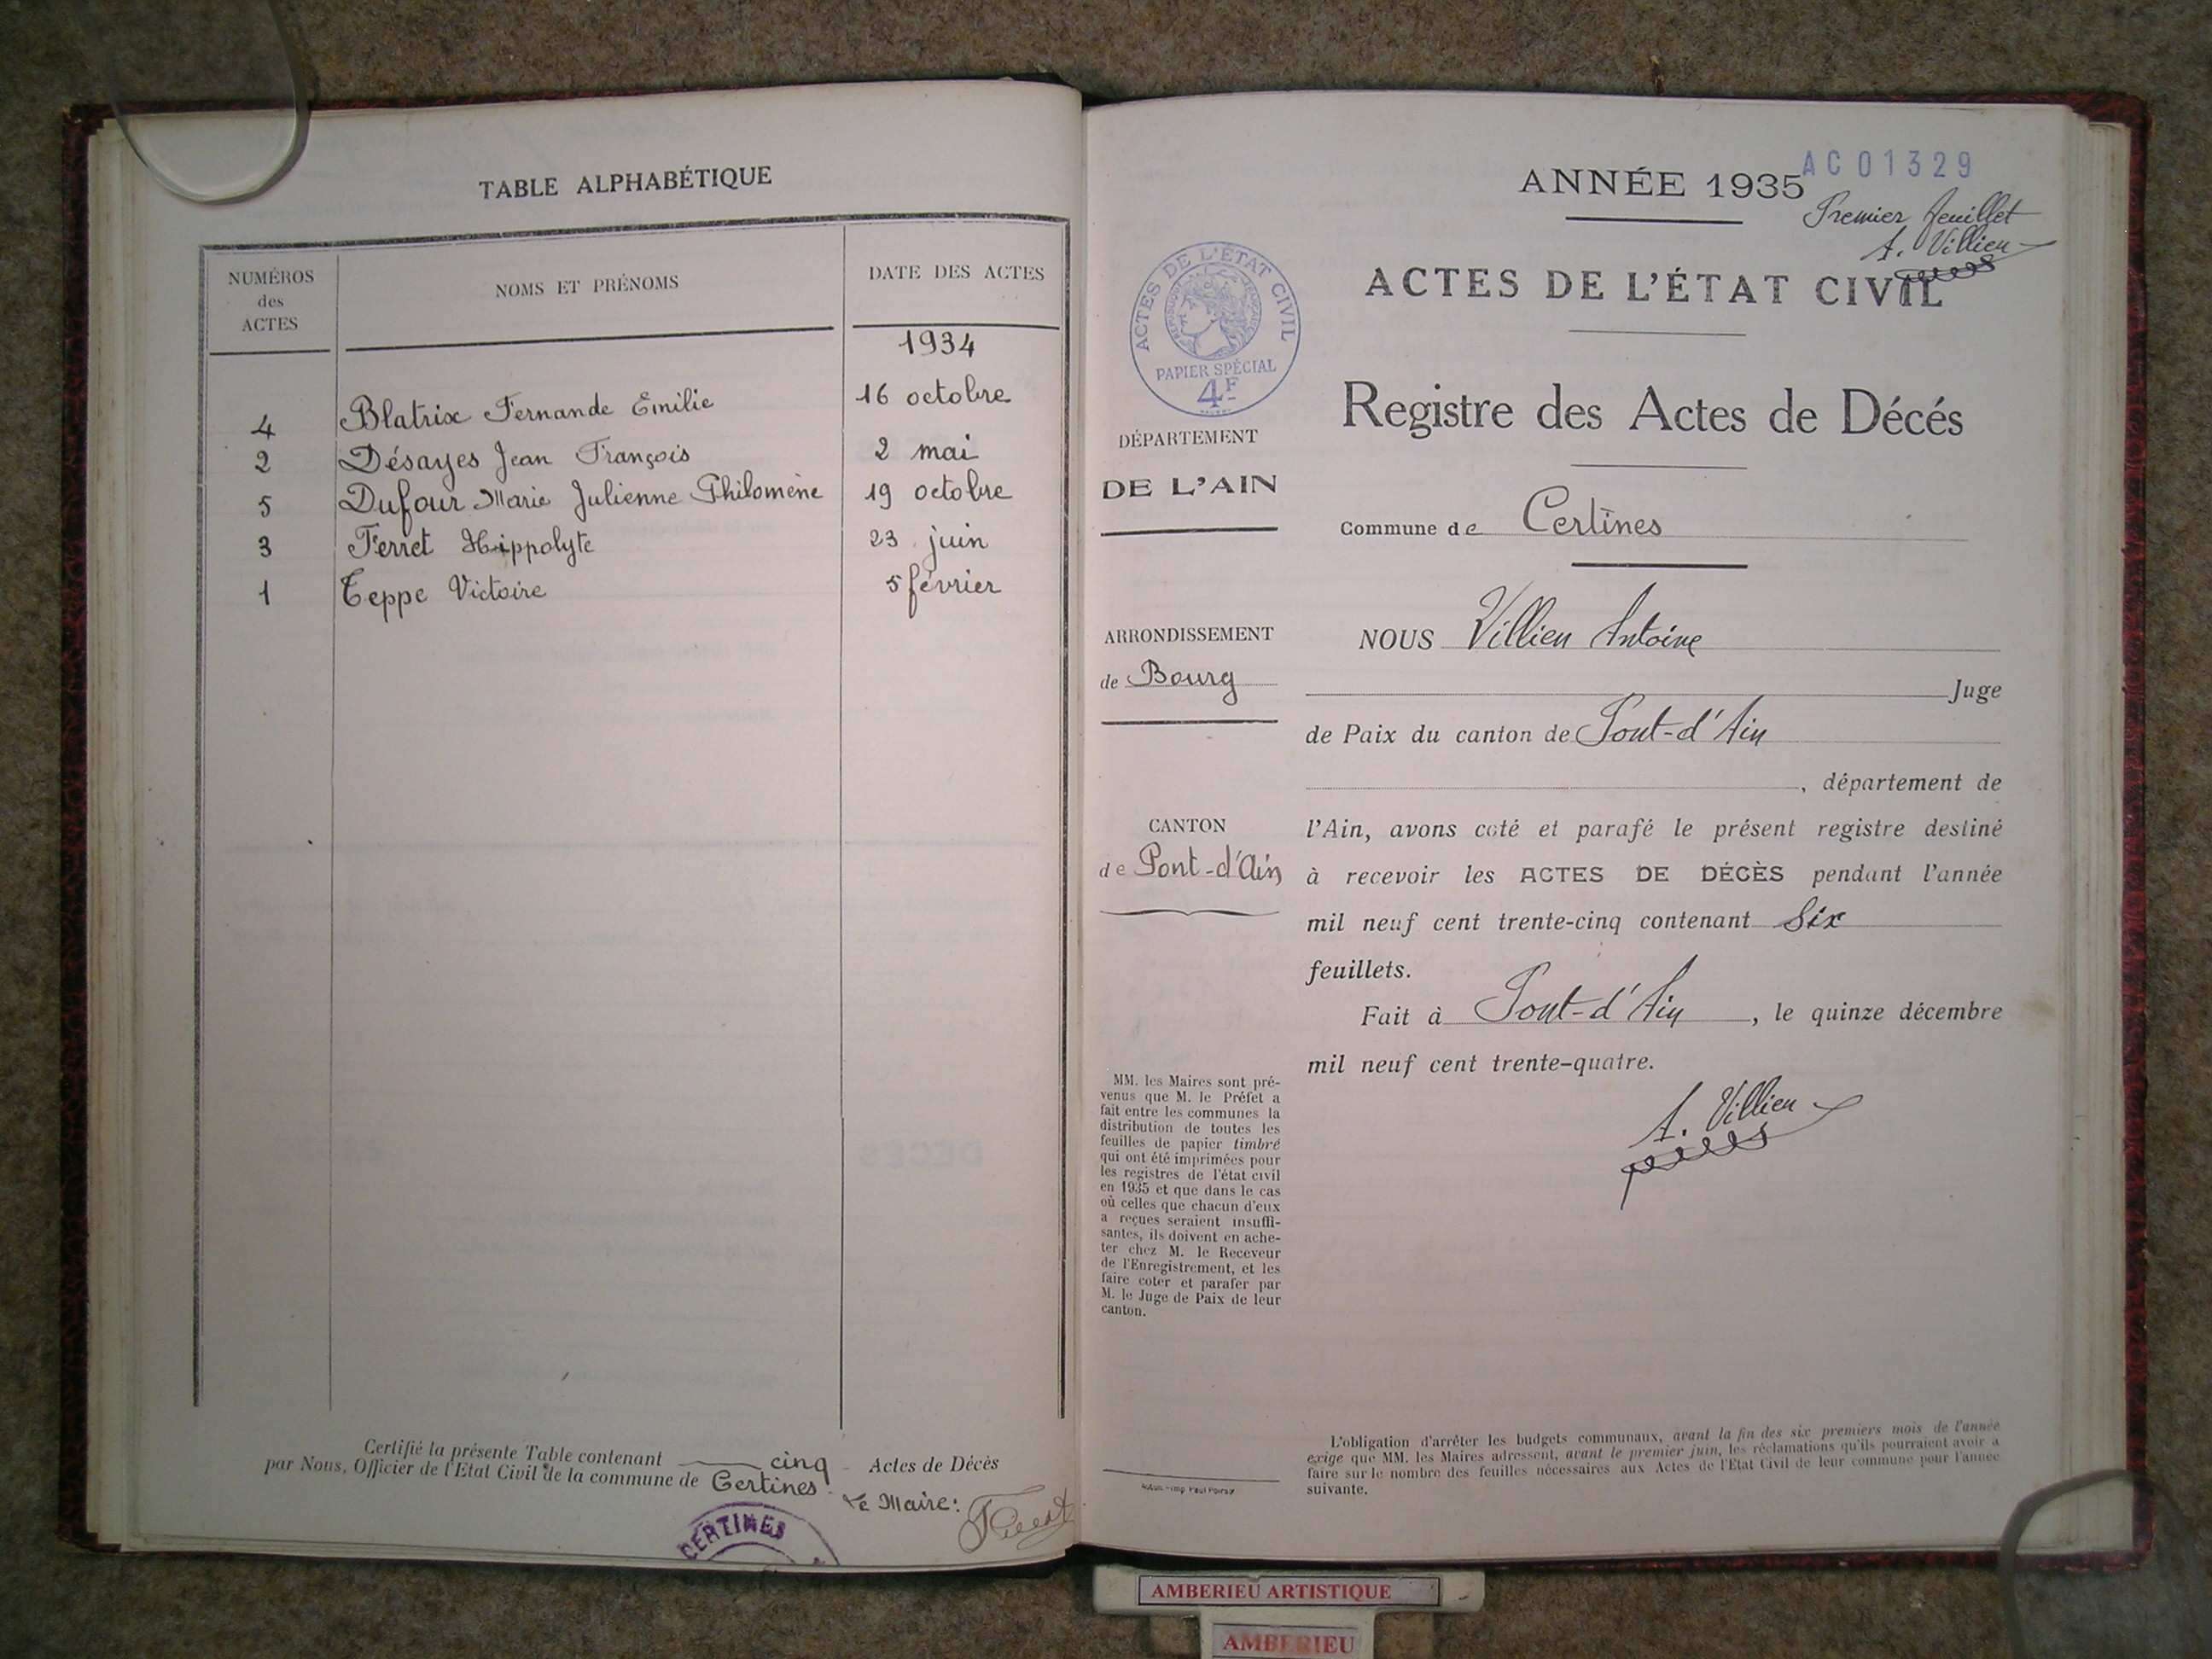 TABLE ALPHABÉTIQUE
NUMÉROS
des
ACTES
NOMS ET PRÉNOMS
DATE DES ACTES
1934
4 Blatrix Fernande Emilie 16 octobre
2 Désayes Jean François 2 mai
5 Dufour Marie Julienne Philomène 19 octobre
3 Ferret Hippolyte 23 juin
1 Teppe Victoire 5 février
Certifié la présente Table contenant cinq Actes de Décès
par Nous, Officier de l'Etat Civil de la commune de Certines.
Le Maire:
CERTINES
AC01329
ANNÉE 1935
Premier feuillet
A. Villien
ACTES DE L'ÉTAT CIVIL
ACTES DE L'ÉTAT CIVIL
RÉPUBLIQUE FRANÇAISE
PAPIER SPÉCIAL
4F
Registre des Actes de Décés
DÉPARTEMENT
DE L'AIN
Commune de Certines
ARRONDISSEMENT
de Bourg
CANTON
de Pont-d'Ain
NOUS Villien Antoine
Juge
de Paix du canton de Pont-d'Ain
, département de
l'Ain, avons coté et parafé le présent registre destiné
à recevoir les ACTES DE DÉCÈS pendant l'année
mil neuf cent trente-cinq contenant Six
feuillets.
Fait à Pont-d'Ain, le quinze décembre
mil neuf cent trente-quatre.
A. Villien
MM. les Maires sont pré-
venus que M. le Préfet a
fait entre les communes la
distribution de toutes les
feuilles de papier timbré
qui ont été imprimées pour
les registres de l'état civil
en 1935 et que dans le cas
où celles que chacun d'eux
a reçues seraient insuffi-
santes, ils doivent en ache-
ter chez M. le Receveur
de l'Enregistrement, et les
faire coter et parafer par
M. le Juge de Paix de leur
canton.
L'obligation d'arrêter les budgets communaux, avant la fin des six premiers mois de l'année
exige que MM. les Maires adressent, avant le premier juin, les réclamations qu'ils pourraient avoir a
faire sur le nombre des feuilles nécessaires aux Actes de l'Etat Civil de leur commune pour l'année
suivante.
AMBERIEU ARTISTIQUE
AMBERIEU